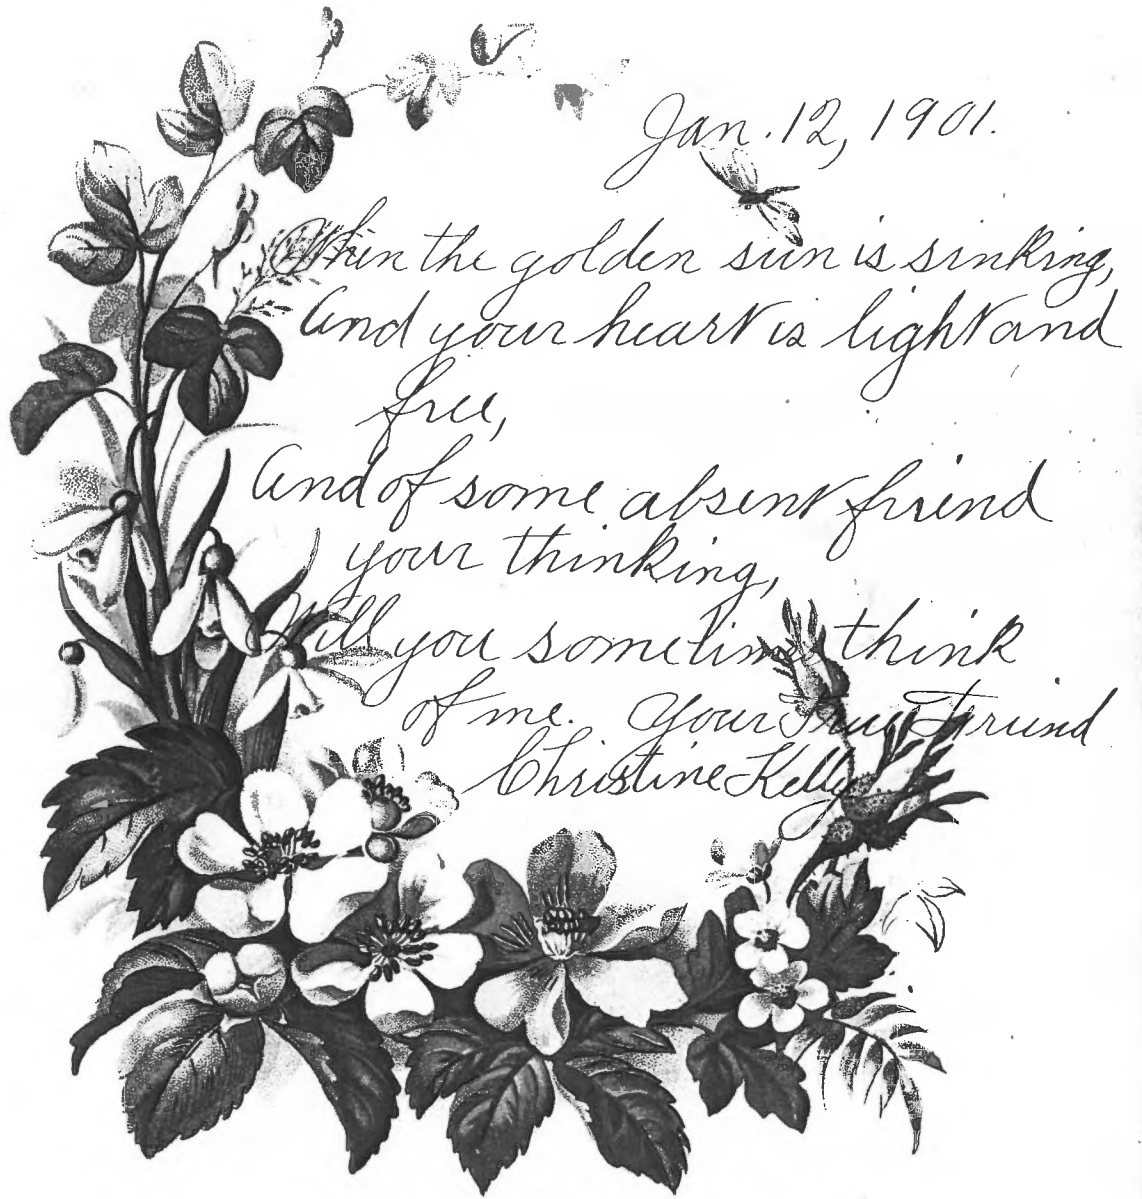 Jan. 12, 1901.
When the golden sun is sinking,
And your heart is light and
free,
And of some absent friend
your thinking,
Will you sometime think
of me. Your True Friend
Christine Kelly.